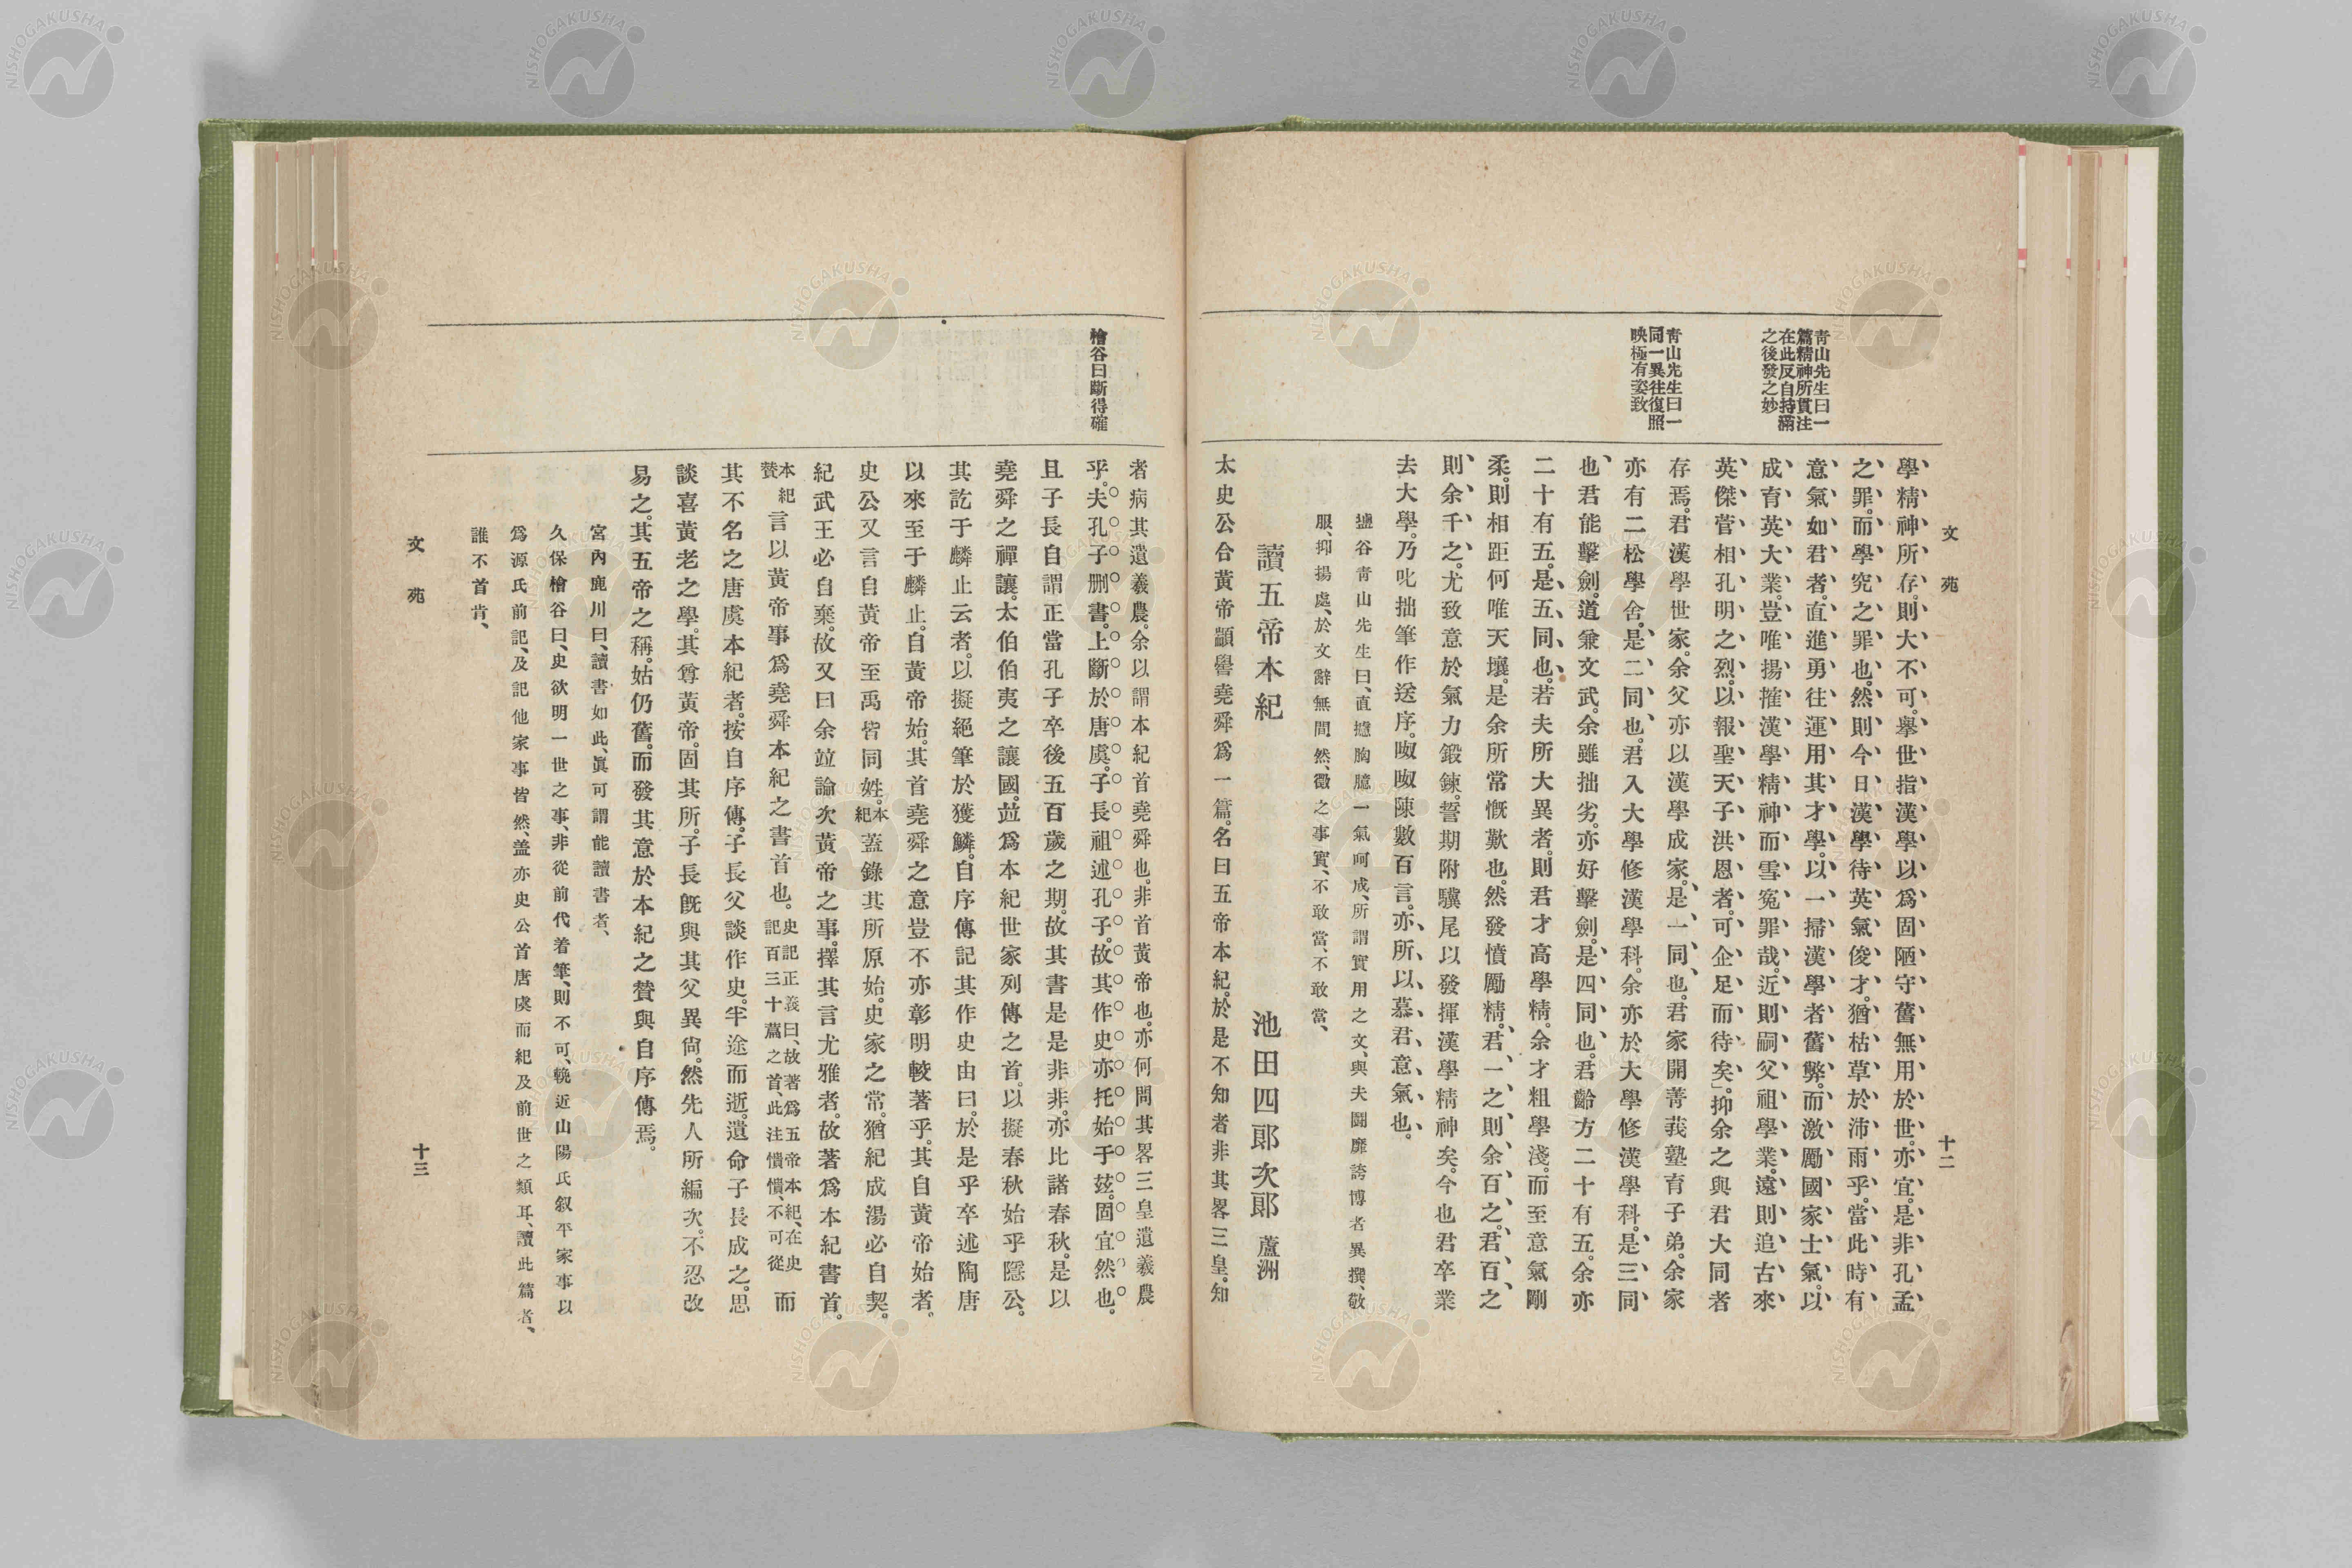 文苑
十二
靑山先生曰一
篇精神所貫注
在此反自持滿
之後發之妙
靑山先生曰一
同一異往復照
映極有姿致
學精神所存。則大不可。擧世指漢學以爲固陋守舊無用於世。亦宜。是非孔孟
之罪。而學究之罪也。然則今日漢學待英氣俊才。猶枯草於沛雨乎。當此時有
意氣如君者。直進勇往運用其才學。以一掃漢學者舊弊。而激勵國家士氣。以
成育英大業。豈唯揚搉漢學精神而雪冤罪哉。近則嗣父祖學業。遠則追古來
英傑菅相孔明之烈。以報聖天子洪恩者。可企足而待矣」。抑余之與君大同者
存焉。君漢學世家。余父亦以漢學成家。是一同也。君家開菁莪塾育子弟。余家
亦有二松學舍。是二同也。君入大學修漢學科。余亦於大學修漢學科。是三同
也、君能擊劍。道兼文武。余雖拙劣。亦好擊劍。是四同也。君齡方二十有五。余亦
二十有五。是五同也。若夫所大異者。則君才高學精。余才粗學淺。而至意氣剛
柔。則相距何唯天壤。是余所常慨歎也。然發憤勵精。君一之則余百之。君百之
則余千之。尤致意於氣力鍛鍊。誓期附驥尾以發揮漢學精神矣。今也君卒業
去大學。乃叱拙筆作送序。呶呶陳數百言。亦所以慕君意氣也。
鹽谷靑山先生曰、直攄胸臆一氣呵成、所謂實用之文、與夫鬪靡誇博者異撰、敬
服、抑揚處、於文辭無間然、微之事實、不敢當、不敢當、
讀五帝本紀 池田四郞次郞 蘆洲
太史公合黃帝顓嚳堯舜爲一篇。名曰五帝本紀。於是不知者非其畧三皇。知
檜谷曰斷得確
者病其遺羲農。余以謂本紀首堯舜也。非首黃帝也。亦何問其畧三皇遺羲農
乎。夫孔子删書。上斷於唐虞。子長祖述孔子。故其作史亦托始于玆。固宜然也。
且子長自謂正當孔子卒後五百歲之期。故其書是是非非。亦比諸春秋。是以
堯舜之禪讓。太伯伯夷之讓國。竝爲本紀世家列傳之首。以擬春秋始乎隱公。
其訖于麟止云者。以擬絕筆於獲麟。自序傳記其作史由曰。於是乎卒述陶唐
以來至于麟止。自黃帝始。其首堯舜之意豈不亦彰明較著乎。其自黃帝始者。
史公又言自黃帝至禹皆同姓。本紀蓋錄其所原始。史家之常。猶紀成湯必自契。
紀武王必自棄。故又曰余竝論次黃帝之事。擇其言尤雅者。故著爲本紀書首。
本紀贊言以黃帝事爲堯舜本紀之書首也。史記正義曰、故著爲五帝本紀、在史記百三十篇之首、此注憒憒、不可從而
其不名之唐虞本紀者。按自序傳。子長父談作史。半途而逝。遺命子長成之。思
談喜黃老之學。其尊黃帝。固其所。子長旣與其父異尙。然先人所編次。不忍改
易之。其五帝之稱。姑仍舊。而發其意於本紀之贊與自序傳焉。
宮內鹿川曰、讀書如此、眞可謂能讀書者、
久保檜谷曰、史欲明一世之事、非從前代着筆、則不可、輓近山陽氏叙平家事以
爲源氏前記、及記他家事皆然、盖亦史公首唐虞而紀及前世之類耳、讀此篇者、
誰不首肯、
文苑
十三